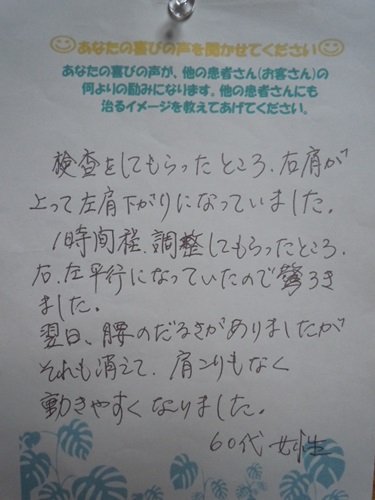 あなたの喜びの声を聞かせてください
あなたの喜びの声が、他の患者さん(お客さん)の
何よりの励みになります。他の患者さんにも
治るイメージを教えてあげてください。
検査をしてもらったところ、右肩が
上って左肩下がりになっていました。
1時間程、調整してもらったところ、
右、左平行になっていたので驚ろき
ました。
翌日、腰のだるさがありましたが
それも消えて、肩こりもなく
動きやすくなりました。
60代 女性